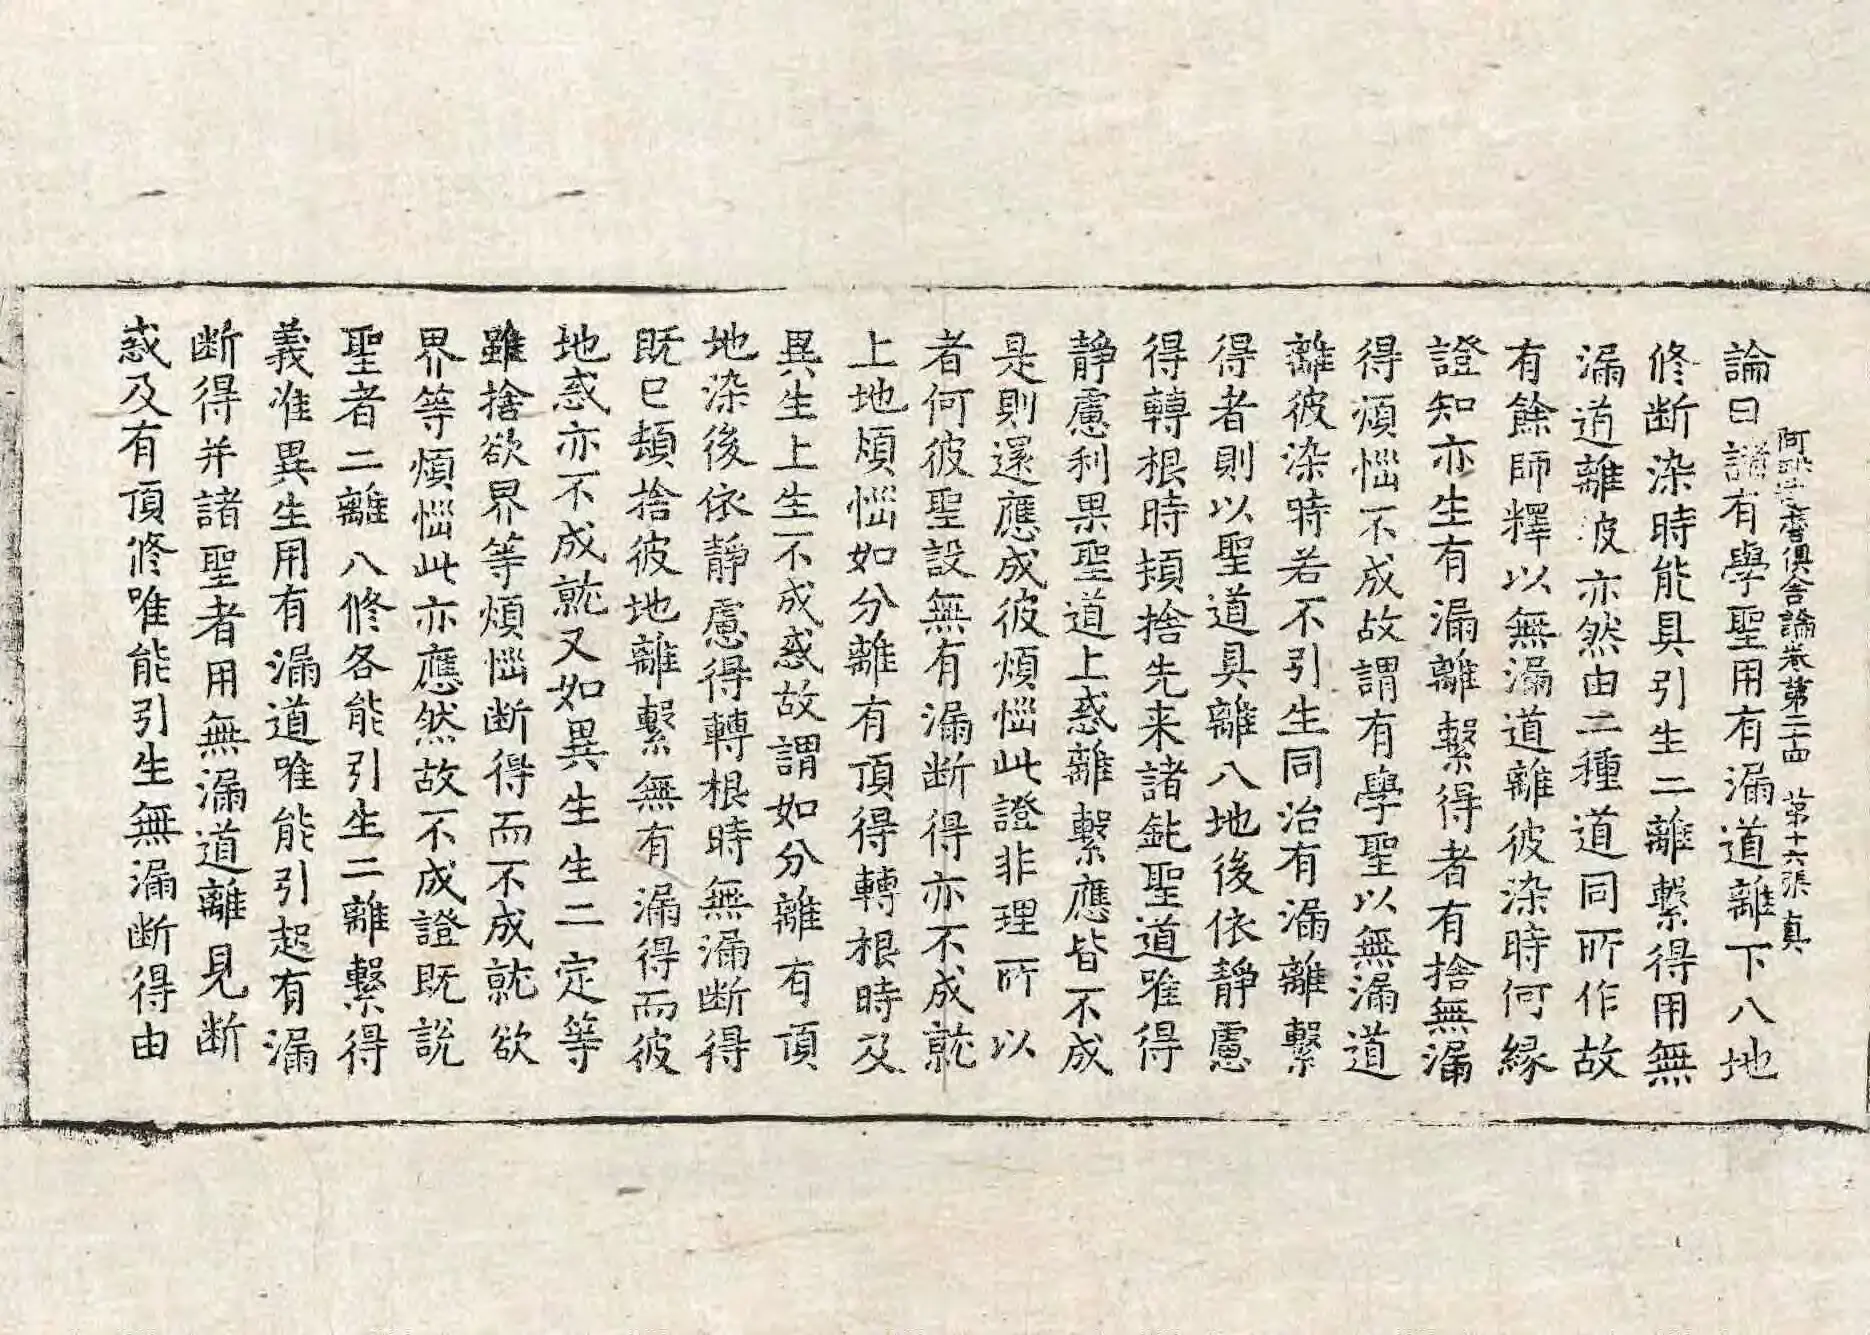 阿毗達磨俱舍論卷第二十四 第十六張 真
論曰諸有學聖用有漏道離下八地
修斷染時能具引生二離繫得用無
漏道離彼亦然由二種道同所作故
有餘師釋以無漏道離彼染時何緣
證知亦生有漏離繫得者有捨無漏
得煩惱不成故謂有學聖以無漏道
離彼染時若不引生同治有漏離繫
得者則以聖道具離八地後依靜慮
得轉根時頓捨先來諸鈍聖道唯得
靜慮利果聖道上惑離繫應皆不成
是則還應成彼煩惱此證非理所以
者何彼聖設無有漏斷得亦不成就
上地煩惱如分離有頂得轉根時及
異生上生不成惑故謂如分離有頂
地染後依靜慮得轉根時無漏斷得
既已頓捨彼地離繫無有漏得而彼
地惑亦不成就又如異生生二定等
雖捨欲界等煩惱斷得而不成就欲
界等煩惱此亦應然故不成證既說
聖者二離八修各能引生二離繫得
義准異生用有漏道唯能引起有漏
斷得并諸聖者用無漏道離見斷
惑及有頂修唯能引生無漏斷得由